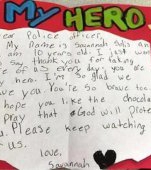 My HERO
ear Police officer,
My name is Savannah Solis
am 10 years old. I just wa
say thank you for taking
e of us every day. you are
hero. I'm so glad we
ave you. You're so brave too.
hope you like the chocola
pray that God will prote
u. Please keep watching
us.
love,
Savannah